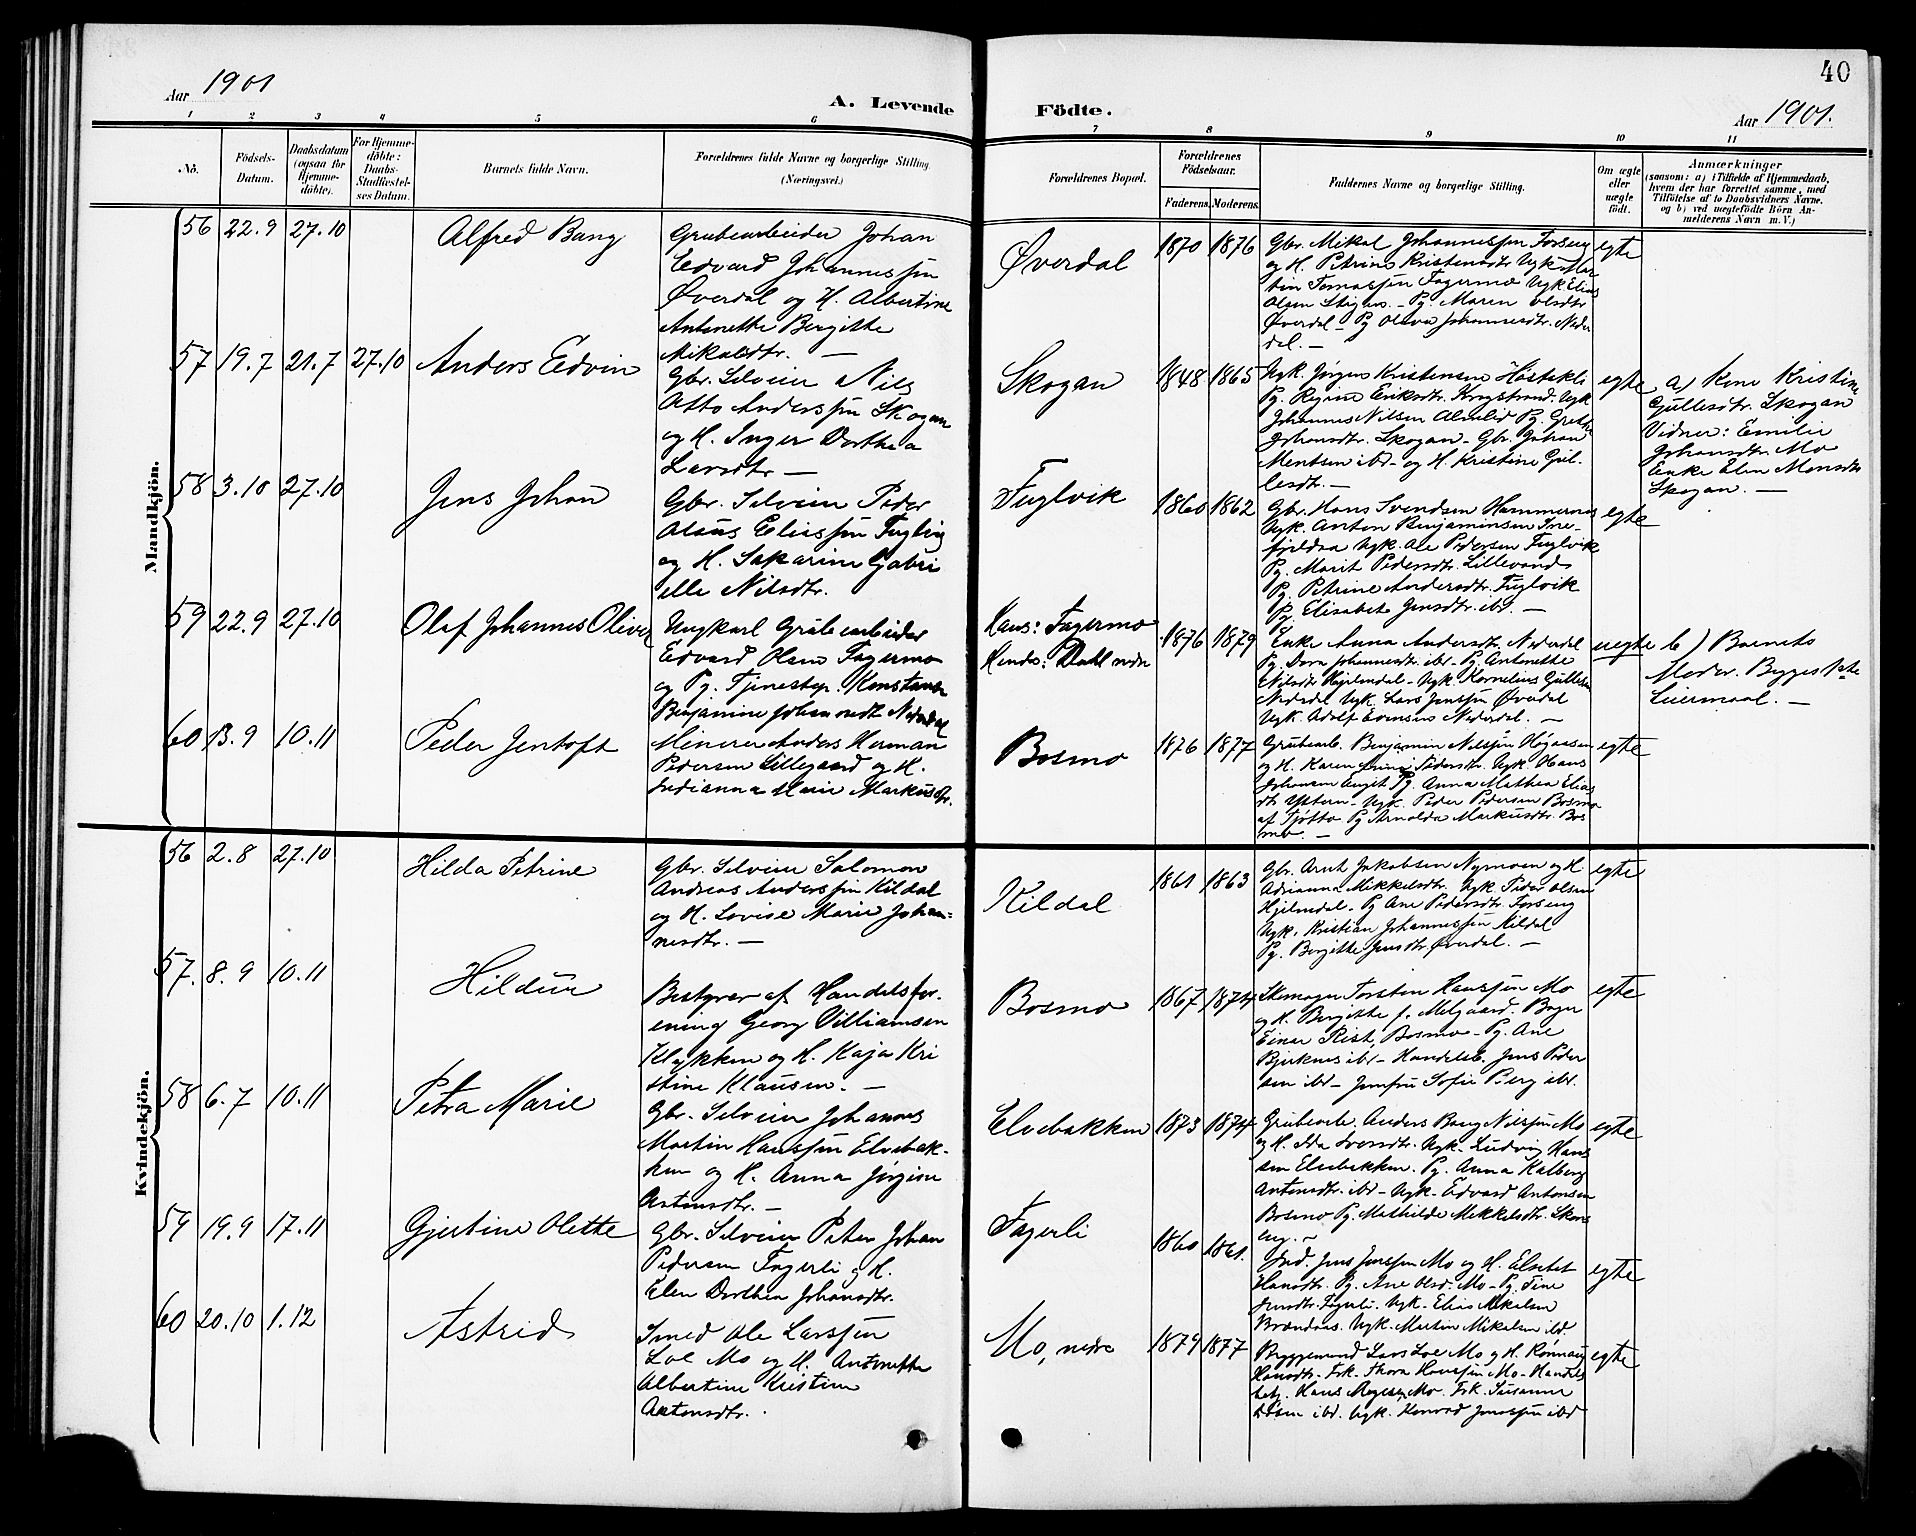 40
Aar 1901
A. Levende
Födte.
Aar 1901.
1 2 3 4 5 6 7 8 9 10 11
No.
Födsels-
Datum.
Daabsdatum
(ogsaa for
Hjemme-
döbte).
For Hjemme-
döbte:
Daabs-
Stadfæstel-
ses Datum.
Barnets fulde Navn.
Forældrenes fulde Navne og borgerlige Stilling.
(Næringsvei.)
Forældrenes Bopæl.
Forældrenes
Födselsaar.
Faderens. Moderens.
Faddernes Navne og borgerlige Stilling.
Om ægte
eller
uægte
födt.
Anmærkninger
(saasom: a) i Tilfælde af Hjemmedaab,
hvem der har forrettet samme, med
Tilföielse af to Daabsvidners Navne.
og b) ved uægtefödte Börn An-
melderens Navn m. V.)
Mandkjön.
56 22.9 27.10
Alfred Bang
Grubearbeider Johan
Edvard Johannessen
Øverdal og H. Albertine
Antonette Bergitte
Mikalsdtr. —
Øverdal
1870 1876
Gbr. Mikal Johannessen Forseng
og H. Petrine Kristensdtr. Ugk. Mar
tin Tomassen Fagermo Ugk Elias
Olsen Stigen. - Pg. Maren Olsdtr
Øverdal - Pg Olava Johannesdtr. Neder
dal. —
egte
57 19.7 21.7 27.10
Anders Edvin
Gbr. Selveier Nils
Otto Anderssen Skogan
og H. Inger Dorthea
Larsdtr —
Skogan
1848 1865
Ugk. Jørgen Kristensen Høstakli
Pg. Regine Eriksdtr. Ugk
Johannes Nilsen Almlid Pg. Grethe
Johansdtr. Skogan - Gbr. Johan
Mentsen ibd - og H. Kristine Gul-
lesdtr. —
egte
a) Kone Kristine
Gullesdtr. Skogan
Vidner: Emilie
Johansdtr. Mo
Enke Elen Monsdtr
Skogan. —
58 3.10 27.10
Jens Johan
Gbr. Selveier Peder
Olaus Eliassen Fuglvig
og H. Sakarine Gabri
elle Nilsdtr.
Fuglvik
1860 1862
Gbr. Hans Svendsen Hammernes
Ugk. Anton Benjaminsen Sne-
fjeldaa Ugk. Ole Pedersen Fuglvik
Pg. Marit Pedersdtr. Lillevand
Pg. Petrine Andersdtr. Fuglvik
Pg. Elisabet Jensdtr. ibd. —
egte
59 22.9 27.10
Olaf Johannes Oliver
Ungkarl Grubearbeider
Edvard Olsen Fagermo
og Pg. Tjenestep. Konstanse
Benjamine Johannesdt Nederdal
Hans: Fagermo
Hendes: Dahl nedre
1876 1879
Enke Anna Andersdtr. Nederdal
Pg. Dora Johannesdtr. ibd - Pg. Antonette
Nilsdtr Hjelmdal - Ugk. Kornelius Gullesen
Nederdal Ugk. Lars Jenssen Øverdal
Ugk. Adolf Evensen Nederdal. —
uegte
b) Barnets
Moder. Begges 1ste
Leiermaal. —
60 13.9 10.11
Peder Jentoft
Minerer Anders Herman
Pedersen Lillegaard og H.
Indianna Marie Markusdtr.
Bosmo
1876 1877
Grubearb. Benjamin Nilssen Høgaasen
og H. Karen Pedersdtr. Ugk. Hans
Johansen Pg. Anna Mathea Elias
dtr. Yttern - Ugk. Peder Pedersen Bosmo
af Tjøtto Pg Arnolda Markusdtr. Bos
mo. —
egte
Kvindekjön.
56 2.8 27.10
Hilda Petrine
Gbr. Selveier Salomon
Andreas Anderssen Kildal
og H. Lovise Marie Johan-
nesdtr. —
Kildal
1861 1863
Gbr. Arnt Jakobsen Nymoen og H
Adrianna Mikkelsdtr. Ugk. Peder Olsen
Hjelmdal - Pg Ane Pedersdtr. Forseng
Ugk. Kristian Johannessen Kildal
Pg. Bergitte Jensdtr. Øverdal. —
egte
57. 8.9 10.11
Hildur
Bestyrer af Handelsfor-
ening Georg Villiamsen
Klykken og H. Kaja Kri
stine Klausen. —
Bosmo
1867 1874
Skomager Torsten Hanssen Mo
og H. Bergitte f. Melgaard. Bager
Einar Rist, Bosmo - Pg. Ane
Bjerknes ibd - Handelsb. Jens Peder
sen ibd - Jomfru Sofie Berg ibd.
egte
58 6.7 10.11
Petra Marie
Gbr. Selveier Johannes
Martin Hanssen Elvebak-
ken og H. Anna Jørgine
Antonsdtr. —
Elvebakken
1873 1874
Grubearb. Anders Bang Nilssen Mo
og H. Ida Iversdtr. Ugk. Ludvig Hans
sen Elvebakken. Pg. Anna Kalberg
Antonsdtr. ibd - Ugk. Edvard Antonsen
Bosmo Pg. Mathilde Mikkelsdtr. Skons
eng. -
egte
59 19.9 17.11
Gjertine Olette
Gbr. Selveier Peter Johan
Pedersen Fagerli og H.
Elen Dorthea Johansdtr.
Fagerli
1860 1861.
Ind. Jens Jenssen Mo og H. Elsebet
Hansdtr. Pg. Ane Olsd. Mo - Pg. Tine
Jensdtr. Fagerli. Ugk. Elias Mikalsen
Brændaas. Ugk. Martin Mikalsen ibd.
egte
60 20.10 1.12
Astrid
Smed Ole Larssen
Loe Mo og H. Antonette
Albertine Kristine
Antonsdtr.
Mo, nedre
1879 1877
Byggemand Lars Loe Mo og H. Rønnaug
Hansdtr. Frk. Thora Hanssen Mo - Handels
betj. Hans Mo. Frk. Susanne
Olsen ibd. Ugk. Konrad Jenssen ibd
egte